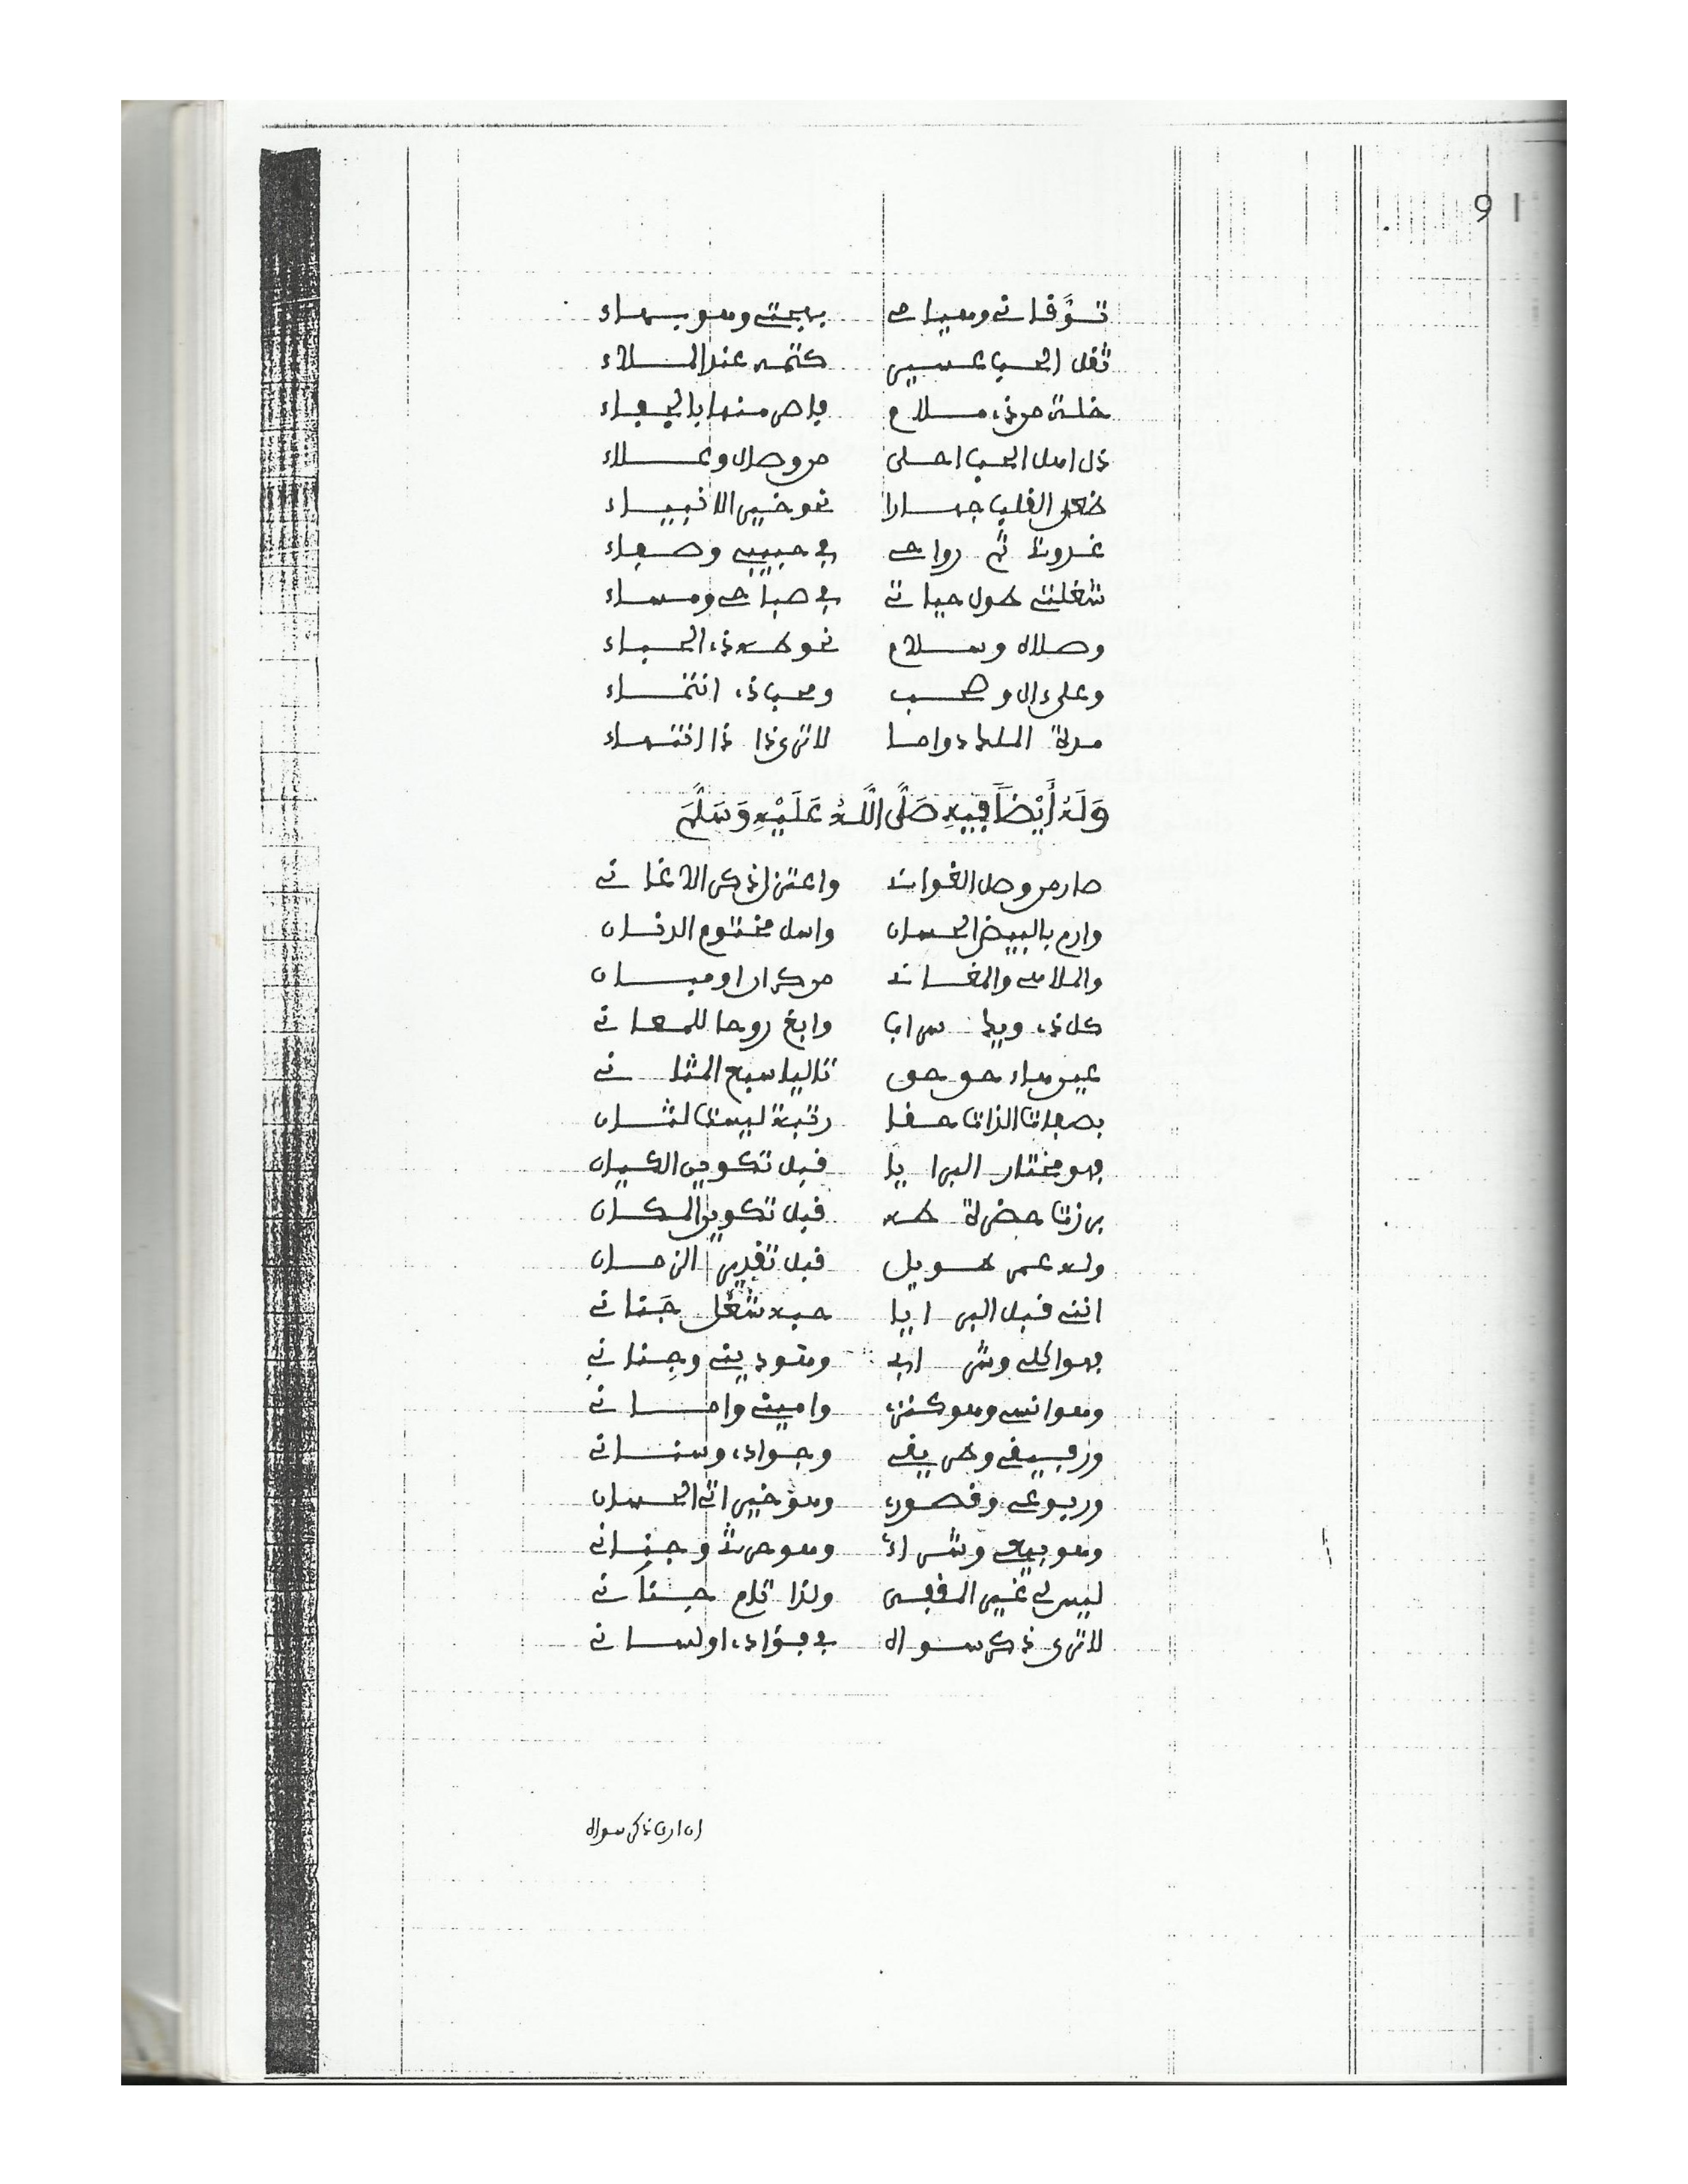 91
توقانے وهيامے بهجتے وهو بهاء
ثقل الحب عسير كتمه عند الملاء
خلة من ذي ملام فاض منها بالجفاء
ذل اهل الحب احلى من وصال وعلاء
ضعن القلب جهارا نحو خير الانبياء
غدوتے ثم رواحے في حبيبے وصفاء
شغلتے طول حياتے في صباحے ومساء
وصلاة وسلام نحو طه ذي الحباء
وعلى ءال وصحب ومحب ذي انتماء
مدة الملك دواما لا ترى ذا ذا انتهاء
وَلَهُ أَيْضاً فِيهِ صَلَّى اللَّهُ عَلَيْهِ وَسَلَّمَ
صارمن وصل الغوانے واعتزل ذكر الاغانے
وارم بالبيض الحسان واسل مختوم الدنان
والملاهے والمغانے من كران او مبان
كل ذي ويك سراب وابغ روحا للمعانے
عين هاء حق حق تاليا سبع المثانے
بصفات الذات حقا رتبة ليست لثان
فهو مختار البرايا قبل تكوين الكيان
برزت حضرة طه قبل تكوين المكان
وله عمر طويل قبل تقدير الزمان
اننے قبل البرايا حبه شغل جَنانے
فهو اكلے وشرابے وهو دينے وجِنانے
وهو انسے وهو كنزي وامينے وامانے
ورفيقے وطريقے وجوادي وسنانے
وربوعے وقصوري وهو خيراتے الحسان
وهو بيعے وشراءي وهو حرثے وجنانے
ليس لے غير المقفى ولذا تام جنانے
لا ترى ذكر سواه في فؤادي او لسانے
ان اردت ذكر سواه